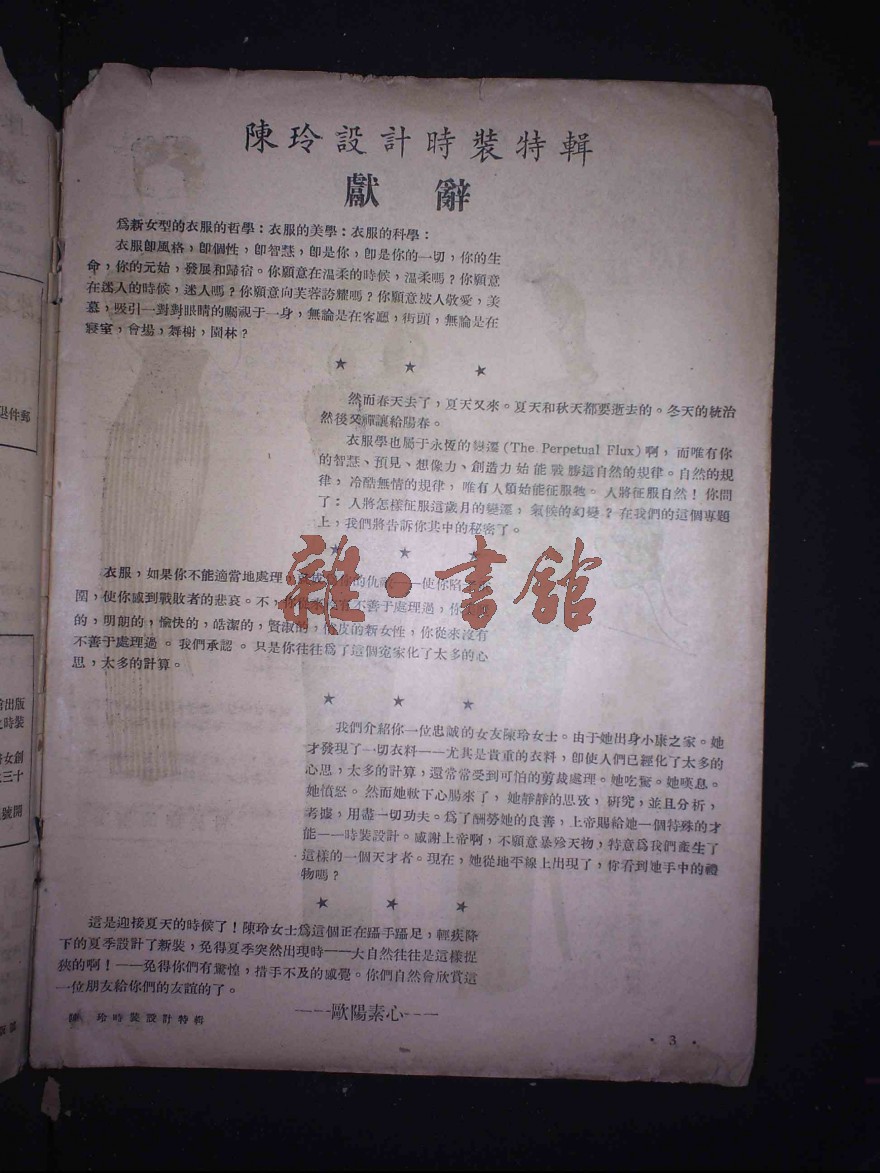 陳玲設計時裝特輯
獻 辭
爲新女型的衣服的哲學：衣服的美學：衣服的科學：
衣服卽風格，卽個性，卽智慧，卽是你，卽是你的一切，你的生
命，你的元始，發展和歸宿。你願意在温柔的時候，温柔嗎？你願意
在迷人的時候，迷人嗎？你願意向芙蓉誇耀嗎？你願意被人敬愛，美
慕，吸引一對對眼睛的矚視于一身，無論是在客廳，街頭，無論是在
寢室，會場，舞榭，園林？
★ ★ ★
然而春天去了，夏天又來。夏天和秋天都要逝去的。冬天的統治
然後又禪讓給陽春。
衣服學也屬于永恆的變遷(The Perpetual Flux)啊，而唯有你
的智慧、預見、想像力、創造力始能戰勝這自然的規律。自然的規
律，冷酷無情的規律，唯有人類始能征服牠。人將征服自然！你問
了：人將怎樣征服這歲月的變遷，氣候的幻變？在我們的這個專題
上，我們將告訴你其中的秘密了。
★ ★ ★
衣服，如果你不能適當地處理，的仇——使你陷
圍，使你感到戰敗者的悲哀。不，你不善于處理過，你
的，明朗的，愉快的，皓潔的，賢淑的，皮的新女性，你從來沒有
不善于處理過。我們承認。只是你往往爲了這個寃家化了太多的心
思，太多的計算。
★ ★ ★
我們介紹你一位忠誠的女友陳玲女士。由于她出身小康之家。她
才發現了一切衣料——尤其是貴重的衣料，卽使人們已經化了太多的
心思，太多的計算，還常常受到可怕的剪裁處理。她吃驚。她嘆息。
她憤怒。然而她軟下心腸來了，她靜靜的思攷，硏究，並且分析，
考據，用盡一切功夫。爲了酬勞她的良善，上帝賜給她一個特殊的才
能——時裝設計。感謝上帝啊，不願意暴殄天物，特意爲我們產生了
這樣的一個天才者。現在，她從地平線上出現了，你看到她手中的禮
物嗎？
★ ★ ★
這是迎接夏天的時候了！陳玲女士爲這個正在躡手躡足，輕疾降
下的夏季設計了新裝，免得夏季突然出現時——大自然往往是這樣捉
狹的啊！——免得你們有驚惶，措手不及的感覺。你們自然會欣賞這
一位朋友給你們的友誼的了。
——歐陽素心——
陳 玲時裝設計特輯
·3·
雜·書館
退件郵
出版
時裝
女創
三十
號開